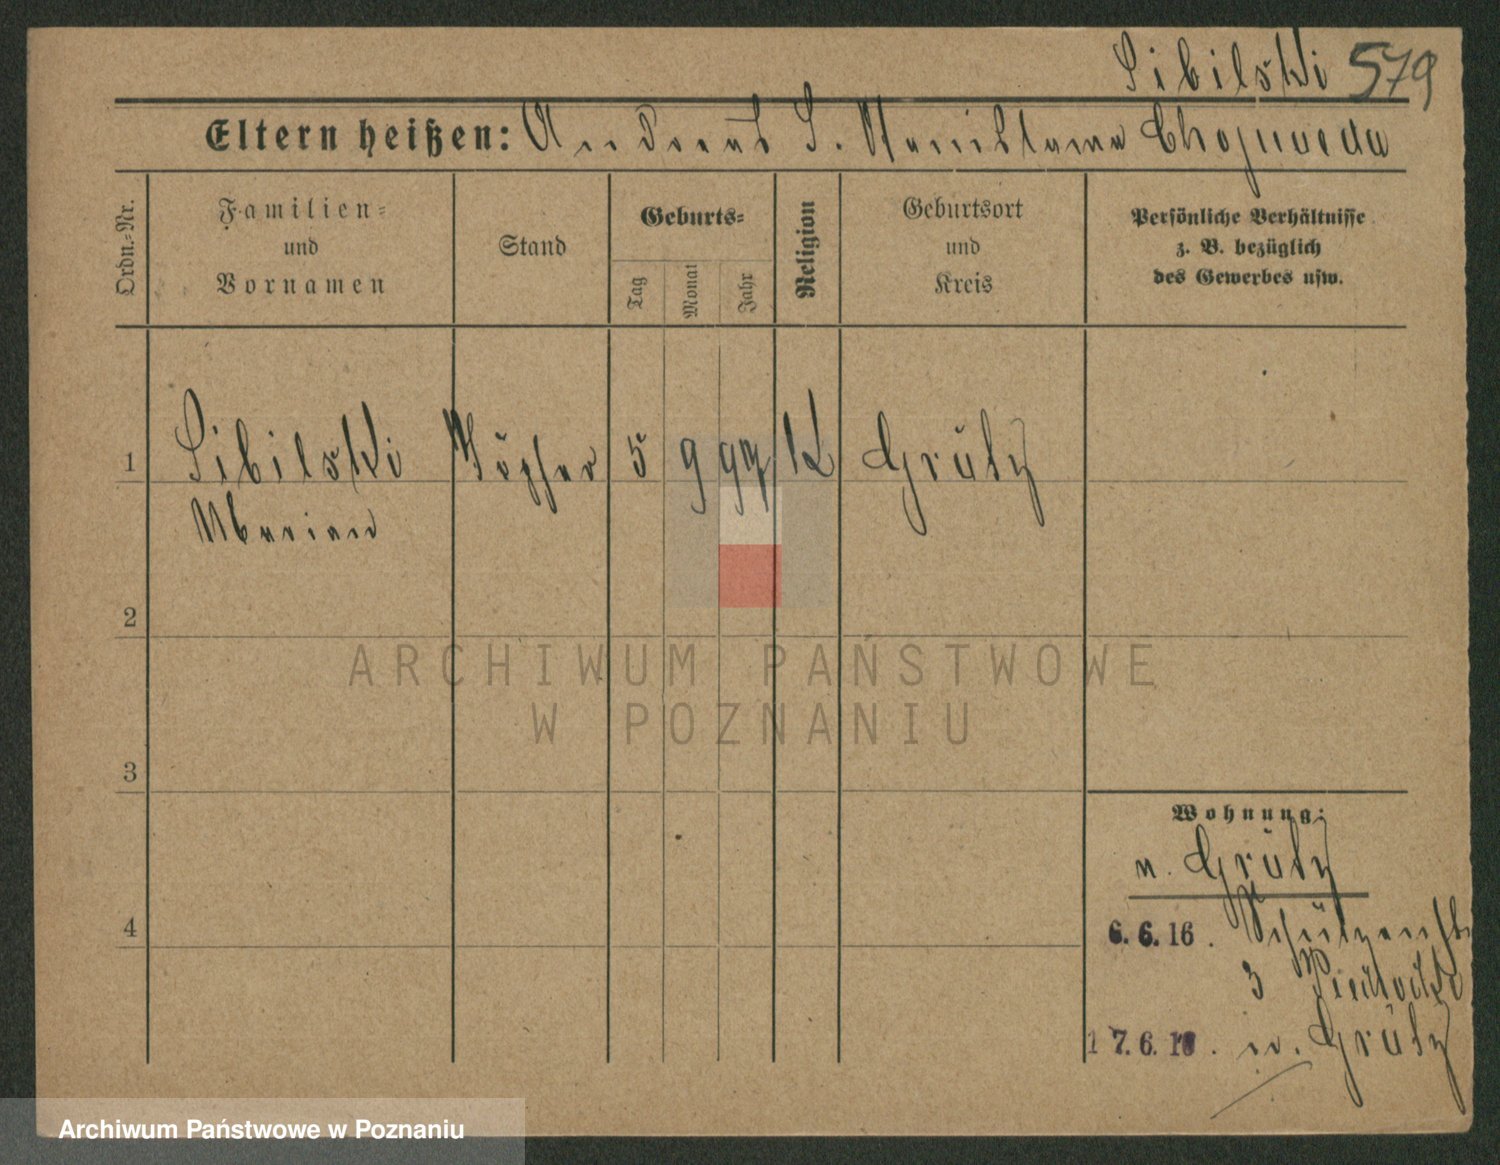 Sibilski 579
Eltern heißen: Andreas S. Stanislawa Chojnacka
Ordn.-Nr.
Familien-
und
Vornamen
Stand
Geburts-
Tag
Monat
Jahr
Religion
Geburtsort
und
Kreis
Persönliche Verhältnisse
z. B. bezüglich
des Gewerbes usw.
1 Sibilski Töpfer 5 9 97 K Grätz
Marian
2
3
4
ARCHIWUM PAŃSTWOWE
W POZNANIU
Wohnung:
n. Grätz
6. 6. 16. Schützenstr
3
17. 6. 16. n. Grätz
Archiwum Państwowe w Poznaniu